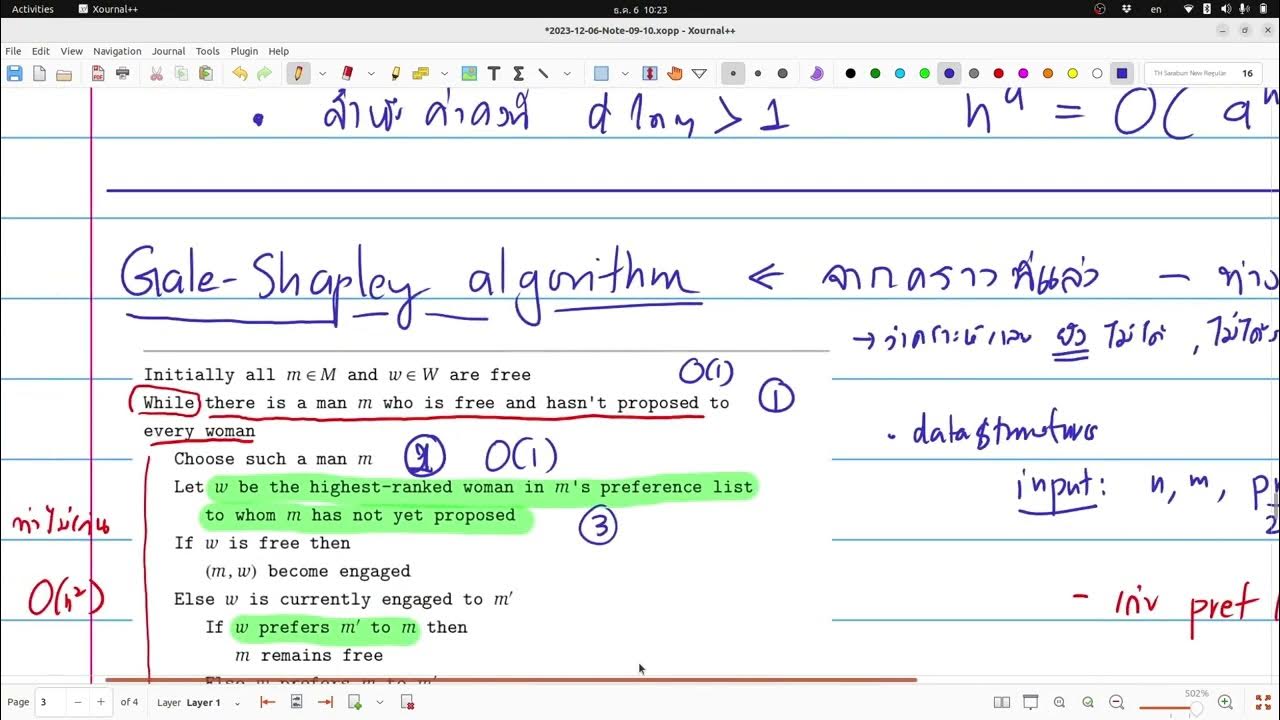 Activities Xournal++ ธ.ค. 6 10:23 en
*2023-12-06-Note-09-10.xopp - Xournal++
File Edit View Navigation Journal Tools Plugin Help
TH Sarabun New Regular 16
• สำหรับ ค่าคงที่ > 1 n = O( a
Gale-Shapley algorithm ← จากคราวที่แล้ว -
→ วิเคราะห์ ยัง ไม่ได้ ,
Initially all m ∈ M and w ∈ W are free O(1)
While there is a man m who is free and hasn't proposed to 1
every woman
• data structures
Choose such a man m O(1)
Let w be the highest-ranked woman in m's preference list
input: n, m,
to whom m has not yet proposed 3
ทำไม่เกิน
If w is free then
(m, w) become engaged
O(n²)
Else w is currently engaged to m′
- เก็บ pref
If w prefers m′ to m then
m remains free
Page 3 of 4 Layer Layer 1 502%